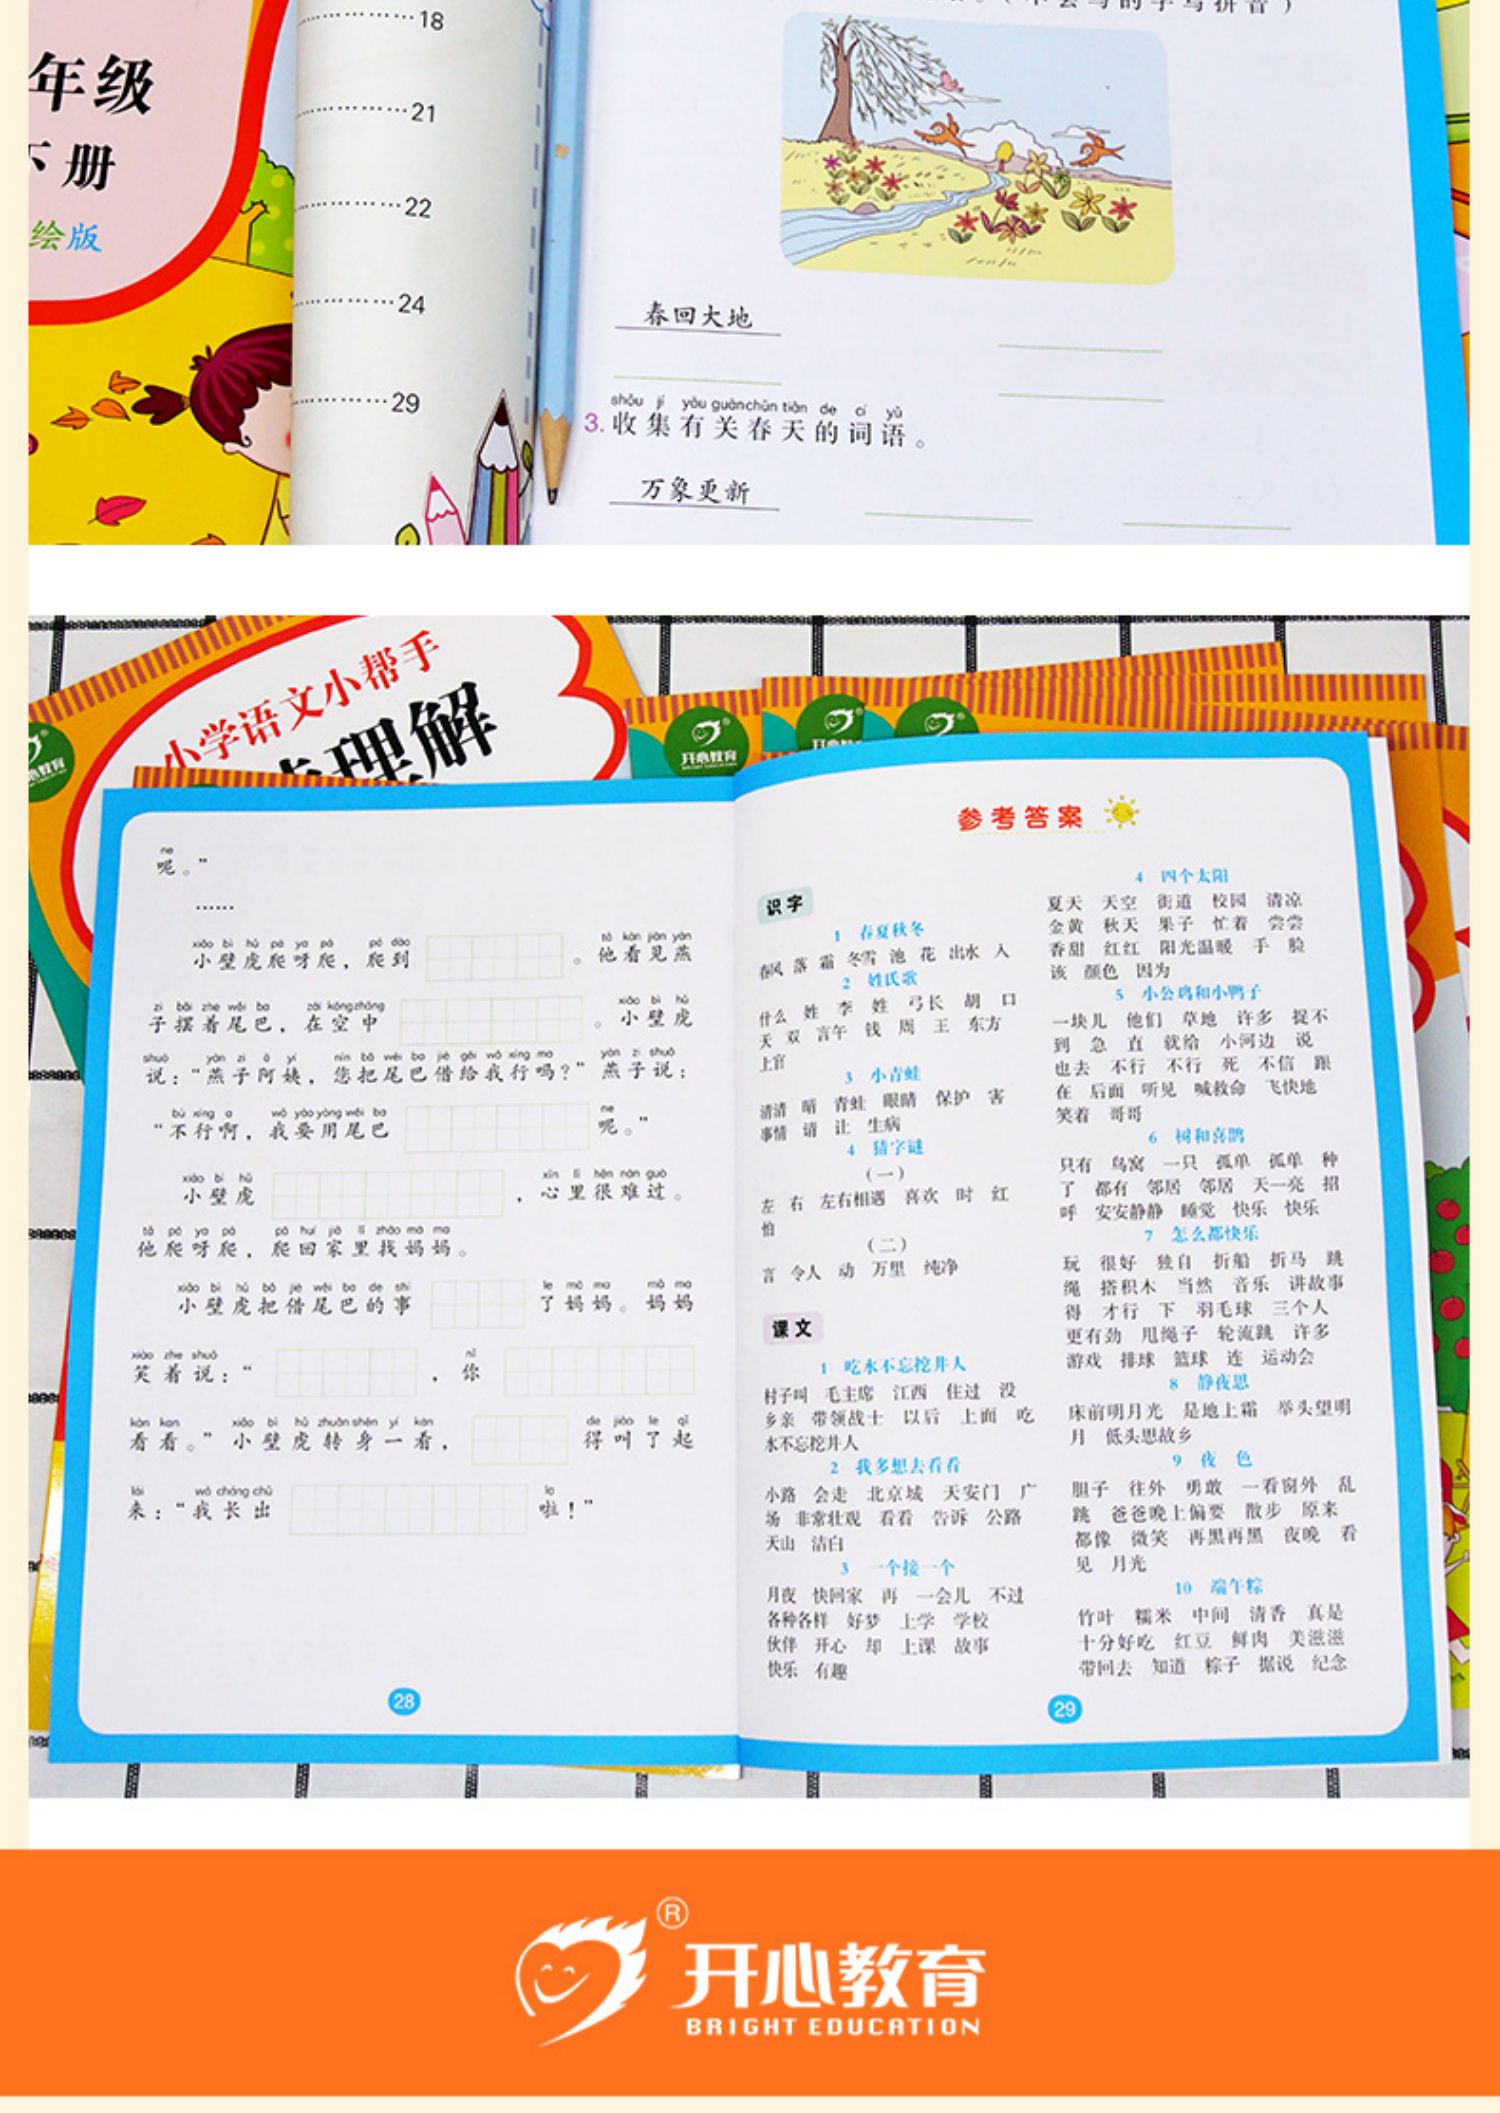 年级
下册
绘版
18
21
22
24
29
春回大地
shōu jí yǒu guān chūn tiān de cí yǔ
3. 收集有关春天的词语。
万象更新
小学语文小帮手
理解
开心教育
BRIGHT EDUCATION
ne
呢。”
……
xiǎo bì hǔ pá ya pá pá dào tā kàn jiàn yàn
小壁虎爬呀爬，爬到 。他看见燕
zi bǎi zhe wěi ba zài kōng zhōng xiǎo bì hǔ
子摆着尾巴，在空中 。小壁虎
shuō yàn zi ā yí nín bǎ wěi ba jiè gěi wǒ xíng ma yàn zi shuō
说：“燕子阿姨，您把尾巴借给我行吗？”燕子说：
bù xíng a wǒ yào yòng wěi ba ne
“不行啊，我要用尾巴 呢。”
xiǎo bì hǔ xīn lǐ hěn nán guò
小壁虎 ，心里很难过。
tā pá ya pá pá huí jiā lǐ zhǎo mā ma
他爬呀爬，爬回家里找妈妈。
xiǎo bì hǔ bǎ jiè wěi ba de shì le mā ma mā ma
小壁虎把借尾巴的事 了妈妈。妈妈
xiào zhe shuō nǐ
笑着说：“ ，你
kàn kan xiǎo bì hǔ zhuǎn shēn yí kàn de jiào le qǐ
看看。”小壁虎转身一看， 得叫了起
lái wǒ zhǎng chū la
来：“我长出 啦！”
28
参考答案
识字
1 春夏秋冬
春风 落 霜 冬雪 池 花 出水 入
2 姓氏歌
什么 姓 李 姓 弓长 胡 口
天 双 言午 钱 周 王 东方
上官
3 小青蛙
清清 晴 青蛙 眼睛 保护 害
事情 请 让 生病
4 猜字谜
（一）
左 右 左右相遇 喜欢 时 红
怕
（二）
言 令人 动 万里 纯净
课文
1 吃水不忘挖井人
村子叫 毛主席 江西 住过 没
乡亲 带领战士 以后 上面 吃
水不忘挖井人
2 我多想去看看
小路 会走 北京城 天安门 广
场 非常壮观 看看 告诉 公路
天山 洁白
3 一个接一个
月夜 快回家 再 一会儿 不过
各种各样 好梦 上学 学校
伙伴 开心 却 上课 故事
快乐 有趣
4 四个太阳
夏天 天空 街道 校园 清凉
金黄 秋天 果子 忙着 尝尝
香甜 红红 阳光温暖 手 脸
该 颜色 因为
5 小公鸡和小鸭子
一块儿 他们 草地 许多 捉不
到 急 直 就给 小河边 说
也去 不行 不行 死 不信 跟
在 后面 听见 喊救命 飞快地
笑着 哥哥
6 树和喜鹊
只有 鸟窝 一只 孤单 孤单 种
了 都有 邻居 邻居 天一亮 招
呼 安安静静 睡觉 快乐 快乐
7 怎么都快乐
玩 很好 独自 折船 折马 跳
绳 搭积木 当然 音乐 讲故事
得 才行 下 羽毛球 三个人
更有劲 甩绳子 轮流跳 许多
游戏 排球 篮球 连 运动会
8 静夜思
床前明月光 是地上霜 举头望明
月 低头思故乡
9 夜 色
胆子 往外 勇敢 一看窗外 乱
跳 爸爸晚上偏要 散步 原来
都像 微笑 再黑再黑 夜晚 看
见 月光
10 端午粽
竹叶 糯米 中间 清香 真是
十分好吃 红豆 鲜肉 美滋滋
带回去 知道 粽子 据说 纪念
29
®
开心教育
BRIGHT EDUCATION